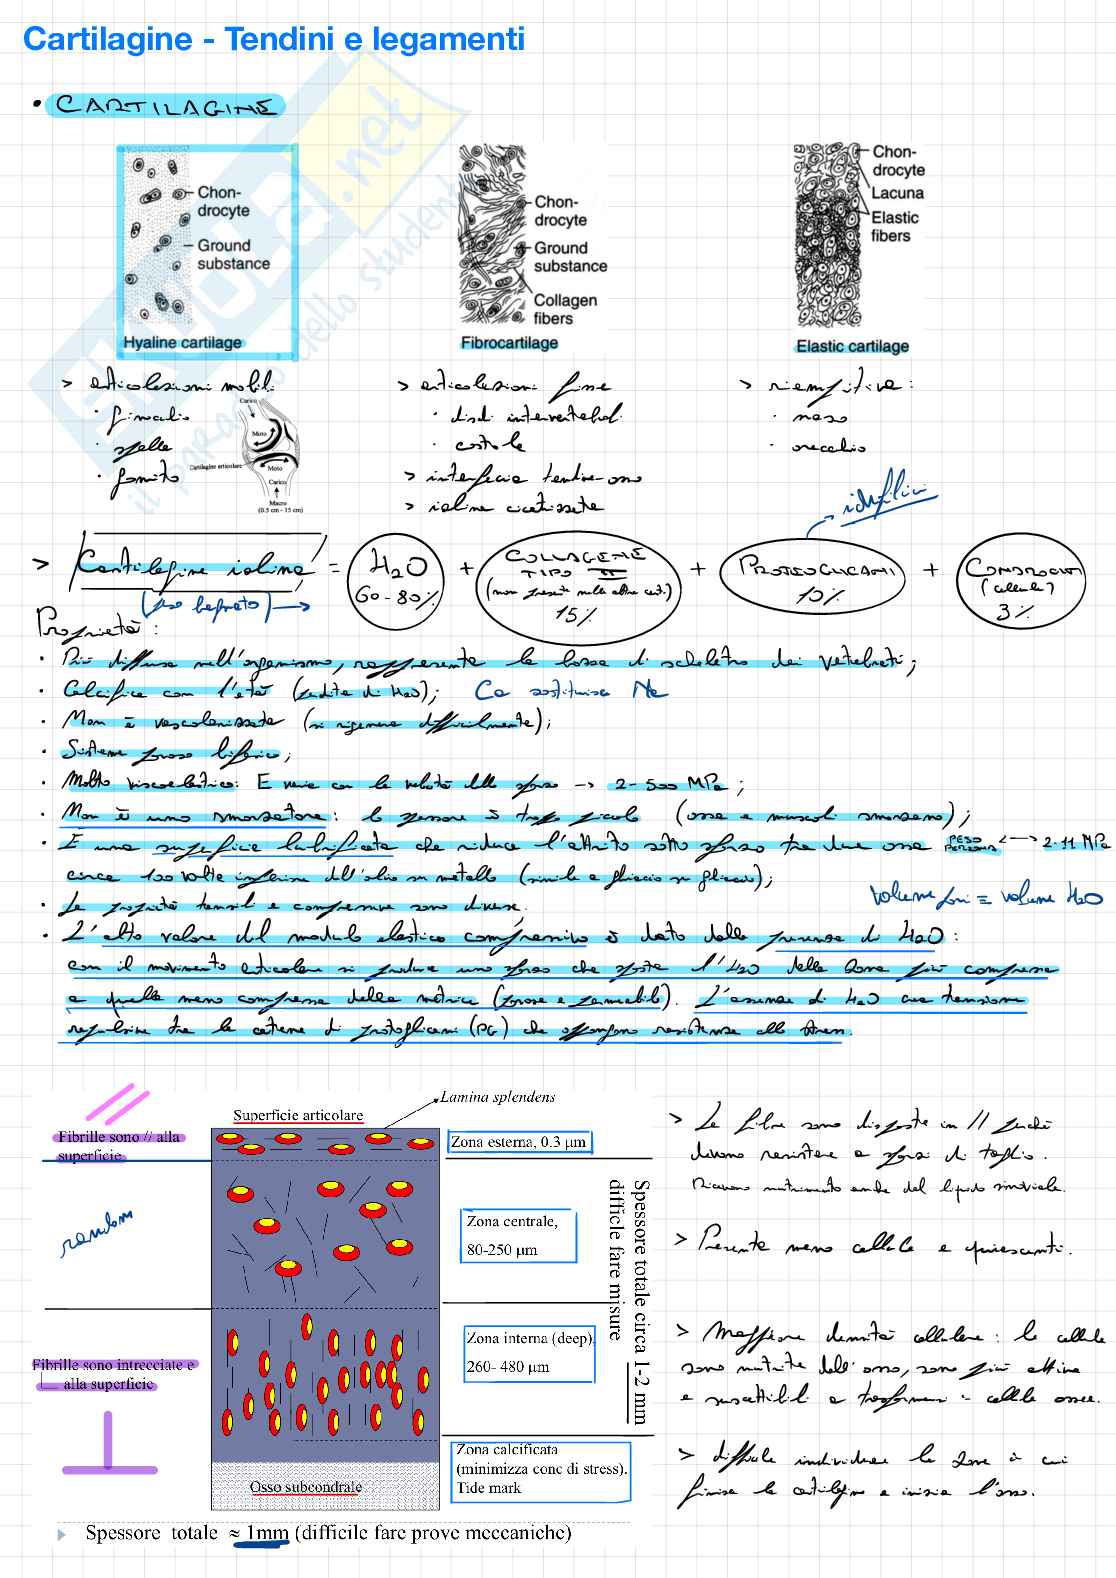 Cartilagine - Tendini e legamenti
• CARTILAGINE
Chon-
drocyte
Ground
substance
Hyaline cartilage
Chon-
drocyte
Ground
substance
Collagen
fibers
Fibrocartilage
Chon-
drocyte
Lacuna
Elastic
fibers
Elastic cartilage
> articolazioni mobili
· ginocchio
· spalla
· gomito
Carico
Moto
Cartilagine articolare
Moto
Carico
Macro
(0.5 cm - 15 cm)
> articolazioni fisse
· dischi intervertebrali
· costole
> interfaccia tendine-osso
> ialina cicatrizzata
> riempitiva:
· naso
· orecchio
idrofilici
> Cartilagine ialina = H2O 60-80% + COLLAGENE TIPO II (non presente nelle altre cart.) 15% + PROTEOGLICANI 10% + CONDROCITI (cellule) 3%
(peso bagnato) →
Proprietà:
· Più diffusa nell'organismo, rappresenta la bozza di scheletro dei vertebrati;
· Calcifica con l'età (perdita di H2O); Ca sostituisce Na
· Non è vascolarizzata (si rigenera difficilmente);
· Sistema poroso bifasico;
· Molto viscoelastico: E varia con la velocità dello sforzo → 2-500 MPa;
· Non è uno smorzatore: lo spessore è troppo piccolo (ossa e muscoli smorzano);
· È una superficie lubrificata che riduce l'attrito sotto sforzo tra due ossa PESO PERSONA ↔ 2-11 MPa
circa 100 volte inferiore dell'olio su metallo (simile a ghiaccio su ghiaccio);
volume pori = volume H2O
· Le proprietà tensili e compressive sono diverse.
· L'alto valore del modulo elastico compressivo è dato dalla presenza di H2O:
con il movimento articolare si produce uno sforzo che sposta l'H2O dalla zona più compressa
a quella meno compressa della matrice (porosa e permeabile). L'assenza di H2O crea tensione
repulsiva tra le catene di proteoglicani (PG) che oppongono resistenza allo stress.
Lamina splendens
Superficie articolare
Fibrille sono // alla
superficie
Zona esterna, 0.3 µm
random
Zona centrale,
80-250 µm
Spessore totale circa 1-2 mm
difficile fare misure
Fibrille sono intrecciate e
alla superficie
Zona interna (deep),
260- 480 µm
Zona calcificata
(minimizza conc di stress).
Tide mark
Osso subcondrale
Spessore totale ≈ 1mm (difficile fare prove meccaniche)
> Le fibre sono disposte in // perché
devono resistere a sforzi di taglio.
Ricevono nutrimento anche dal liquido sinoviale.
> Presente meno cellule e quiescenti.
> Maggiore densità cellulare: le cellule
sono nutrite dall'osso, sono più attive
e suscettibili a trasformarsi in cellule ossee.
> difficile individuare la zona in cui
finisce la cartilagine e inizia l'osso.